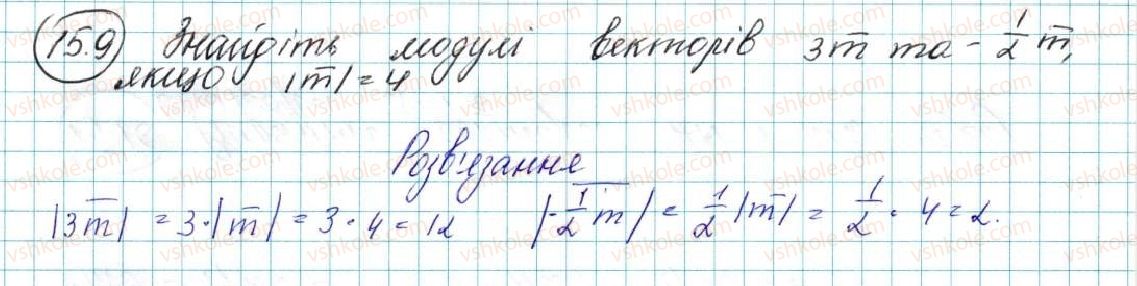 15.9 Знайдіть модулі векторів 3m̅ та -1/2 m̅,
якщо |m̅| = 4
Розв'язання
|3m̅| = 3·|m̅| = 3·4 = 12 |-1/2 m̅| = 1/2 |m̅| = 1/2 · 4 = 2.
vshkole.com